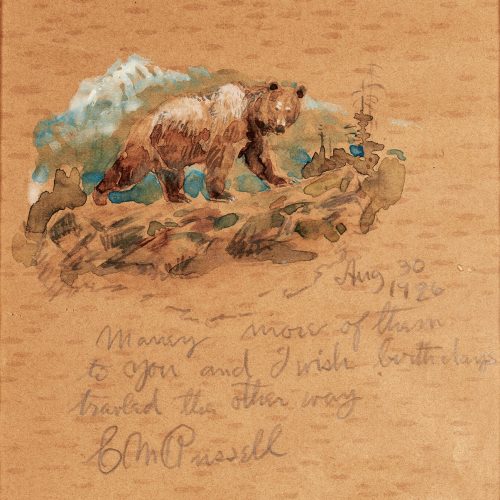 Aug 30
1926
Maney more of them
to you and I wish birthdays
traveled the other way
C M Russell